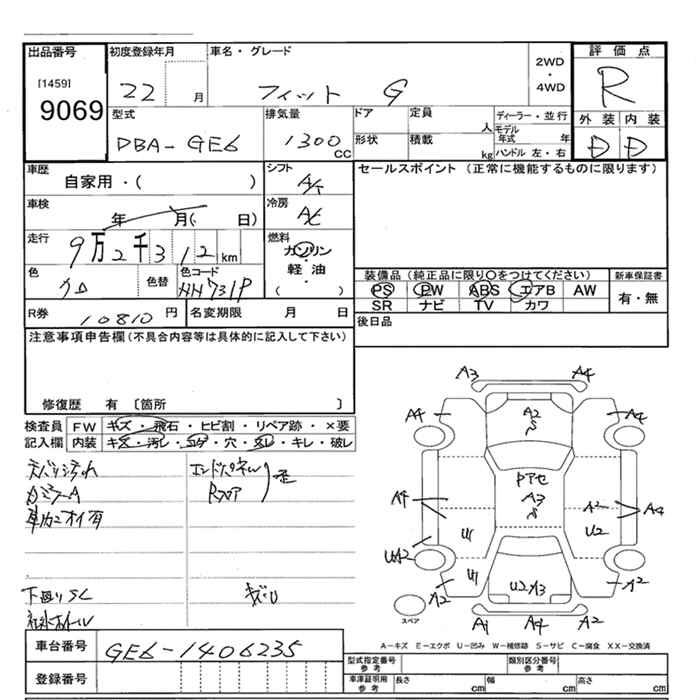 出品番号 初度登録年月 車名・グレード 2WD・4WD 評価点
[1459]
9069 22 月 フィット G R
型式 排気量 ドア 定員 人 ディーラー・並行 外装 内装
DBA-GE6 1300CC 形状 積載 kg モデル年式 年 ハンドル 左・右 D D
車歴 シフト セールスポイント (正常に機能するものに限ります)
自家用・( ) A/T
車検 冷房
年 月( 日) A/C
走行 燃料
9万2千312km ガソリン・軽油
( )
色 色替 色コード 装備品(純正品に限り○をつけてください) 新車保証書
クロ NH731P PS PW ABS エアB AW 有・無
SR ナビ TV カワ
R券 10810円 名変期限 月 日 後日品
注意事項申告欄(不具合内容等は具体的に記入して下さい)
修復歴 有 〔箇所 〕
検査員 FW キズ・飛石・ヒビ割・リペア跡・×要
記入欄 内装 キズ・汚レ・コゲ・穴・スレ・キレ・破レ
エンドパネル
Rフロア 歪
車内ニオイ有
下廻りSC キズU
A3 A4
A4 A2 S A4
Pアセ
A4 A3 S A2 A4
U1 U2
UA2 U1
A2 U2 A3 A2
A1 A4 A2
スペア
A-キズ E-エクボ U-凹み W-補修跡 S-サビ C-腐食 XX-交換済
車台番号 GE6-1406235
型式指定番号 参考 類別区分番号 参考
登録番号 車庫証明用 参考 長さ cm 幅 cm 高さ cm